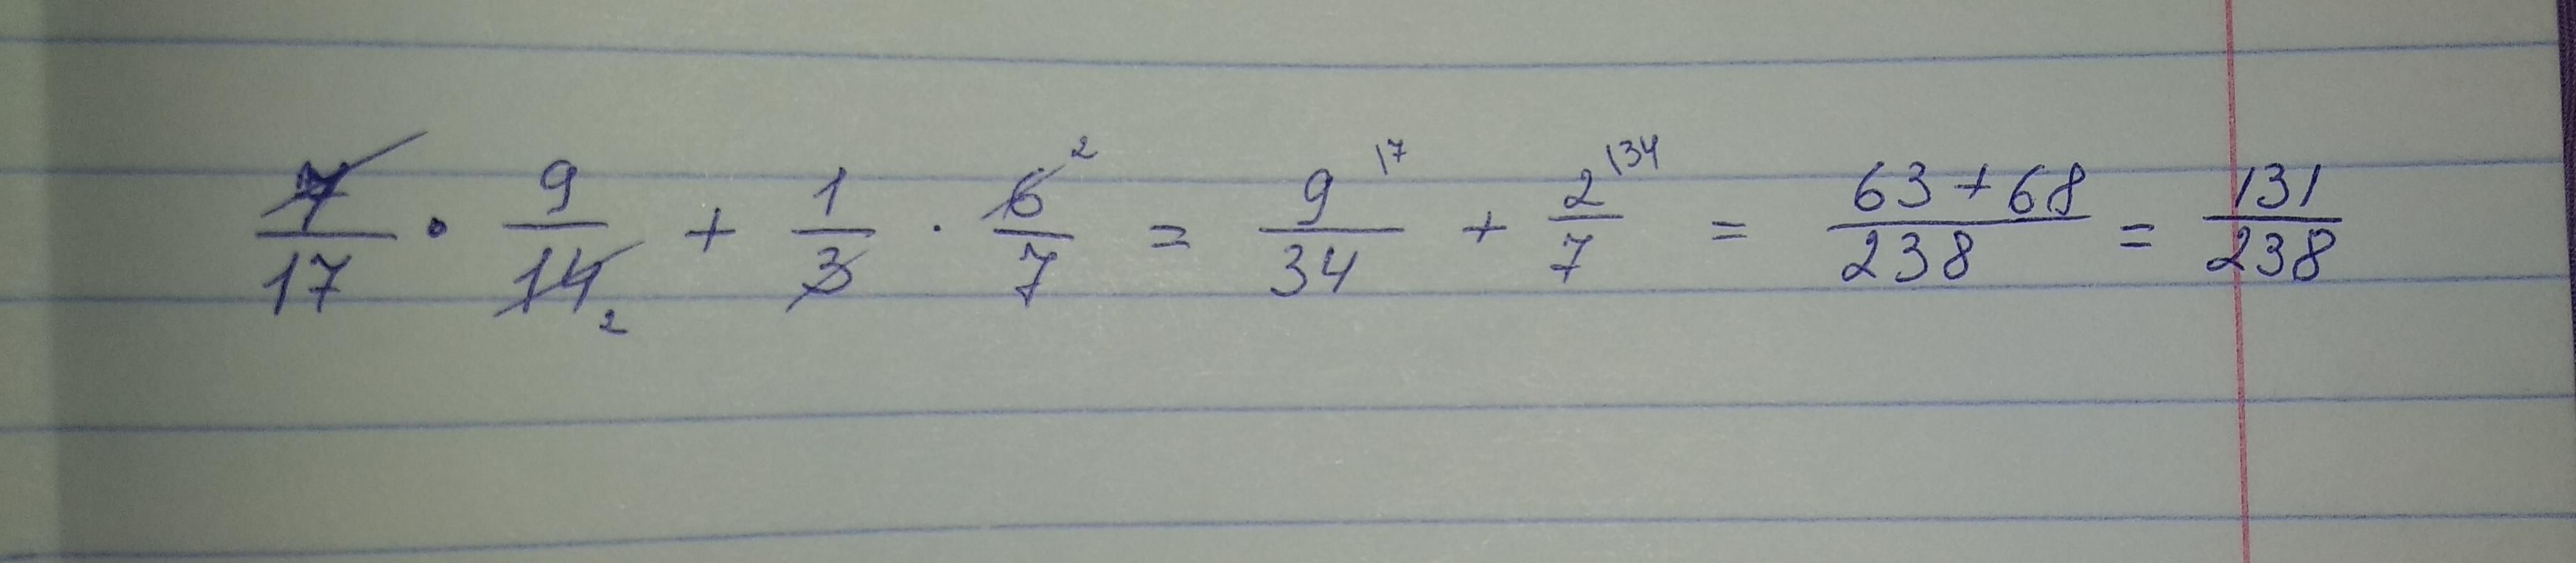 7/17 · 9/14 2 + 1/3 · 6 2/7 = 9 \7/34 + 2 \34/7 = 63+68/238 = 131/238